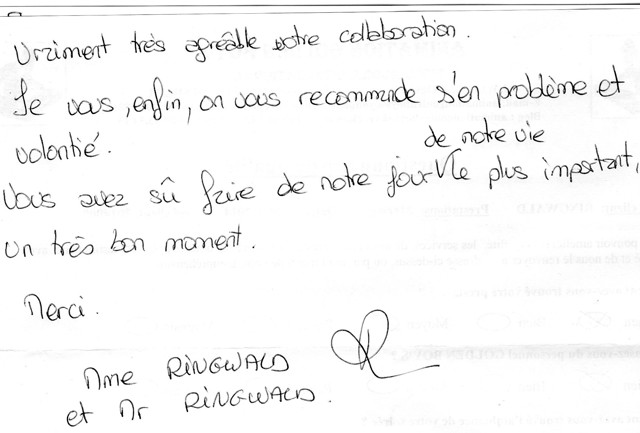 Vraiment très agréable votre collaboration.
Je vous, enfin, on vous recommande s'en problème et
volontié.
Vous avez sû faire de notre jour le plus important, de notre vie
un très bon moment.
Merci.
Mme RINGWALD
et Mr RINGWALD.